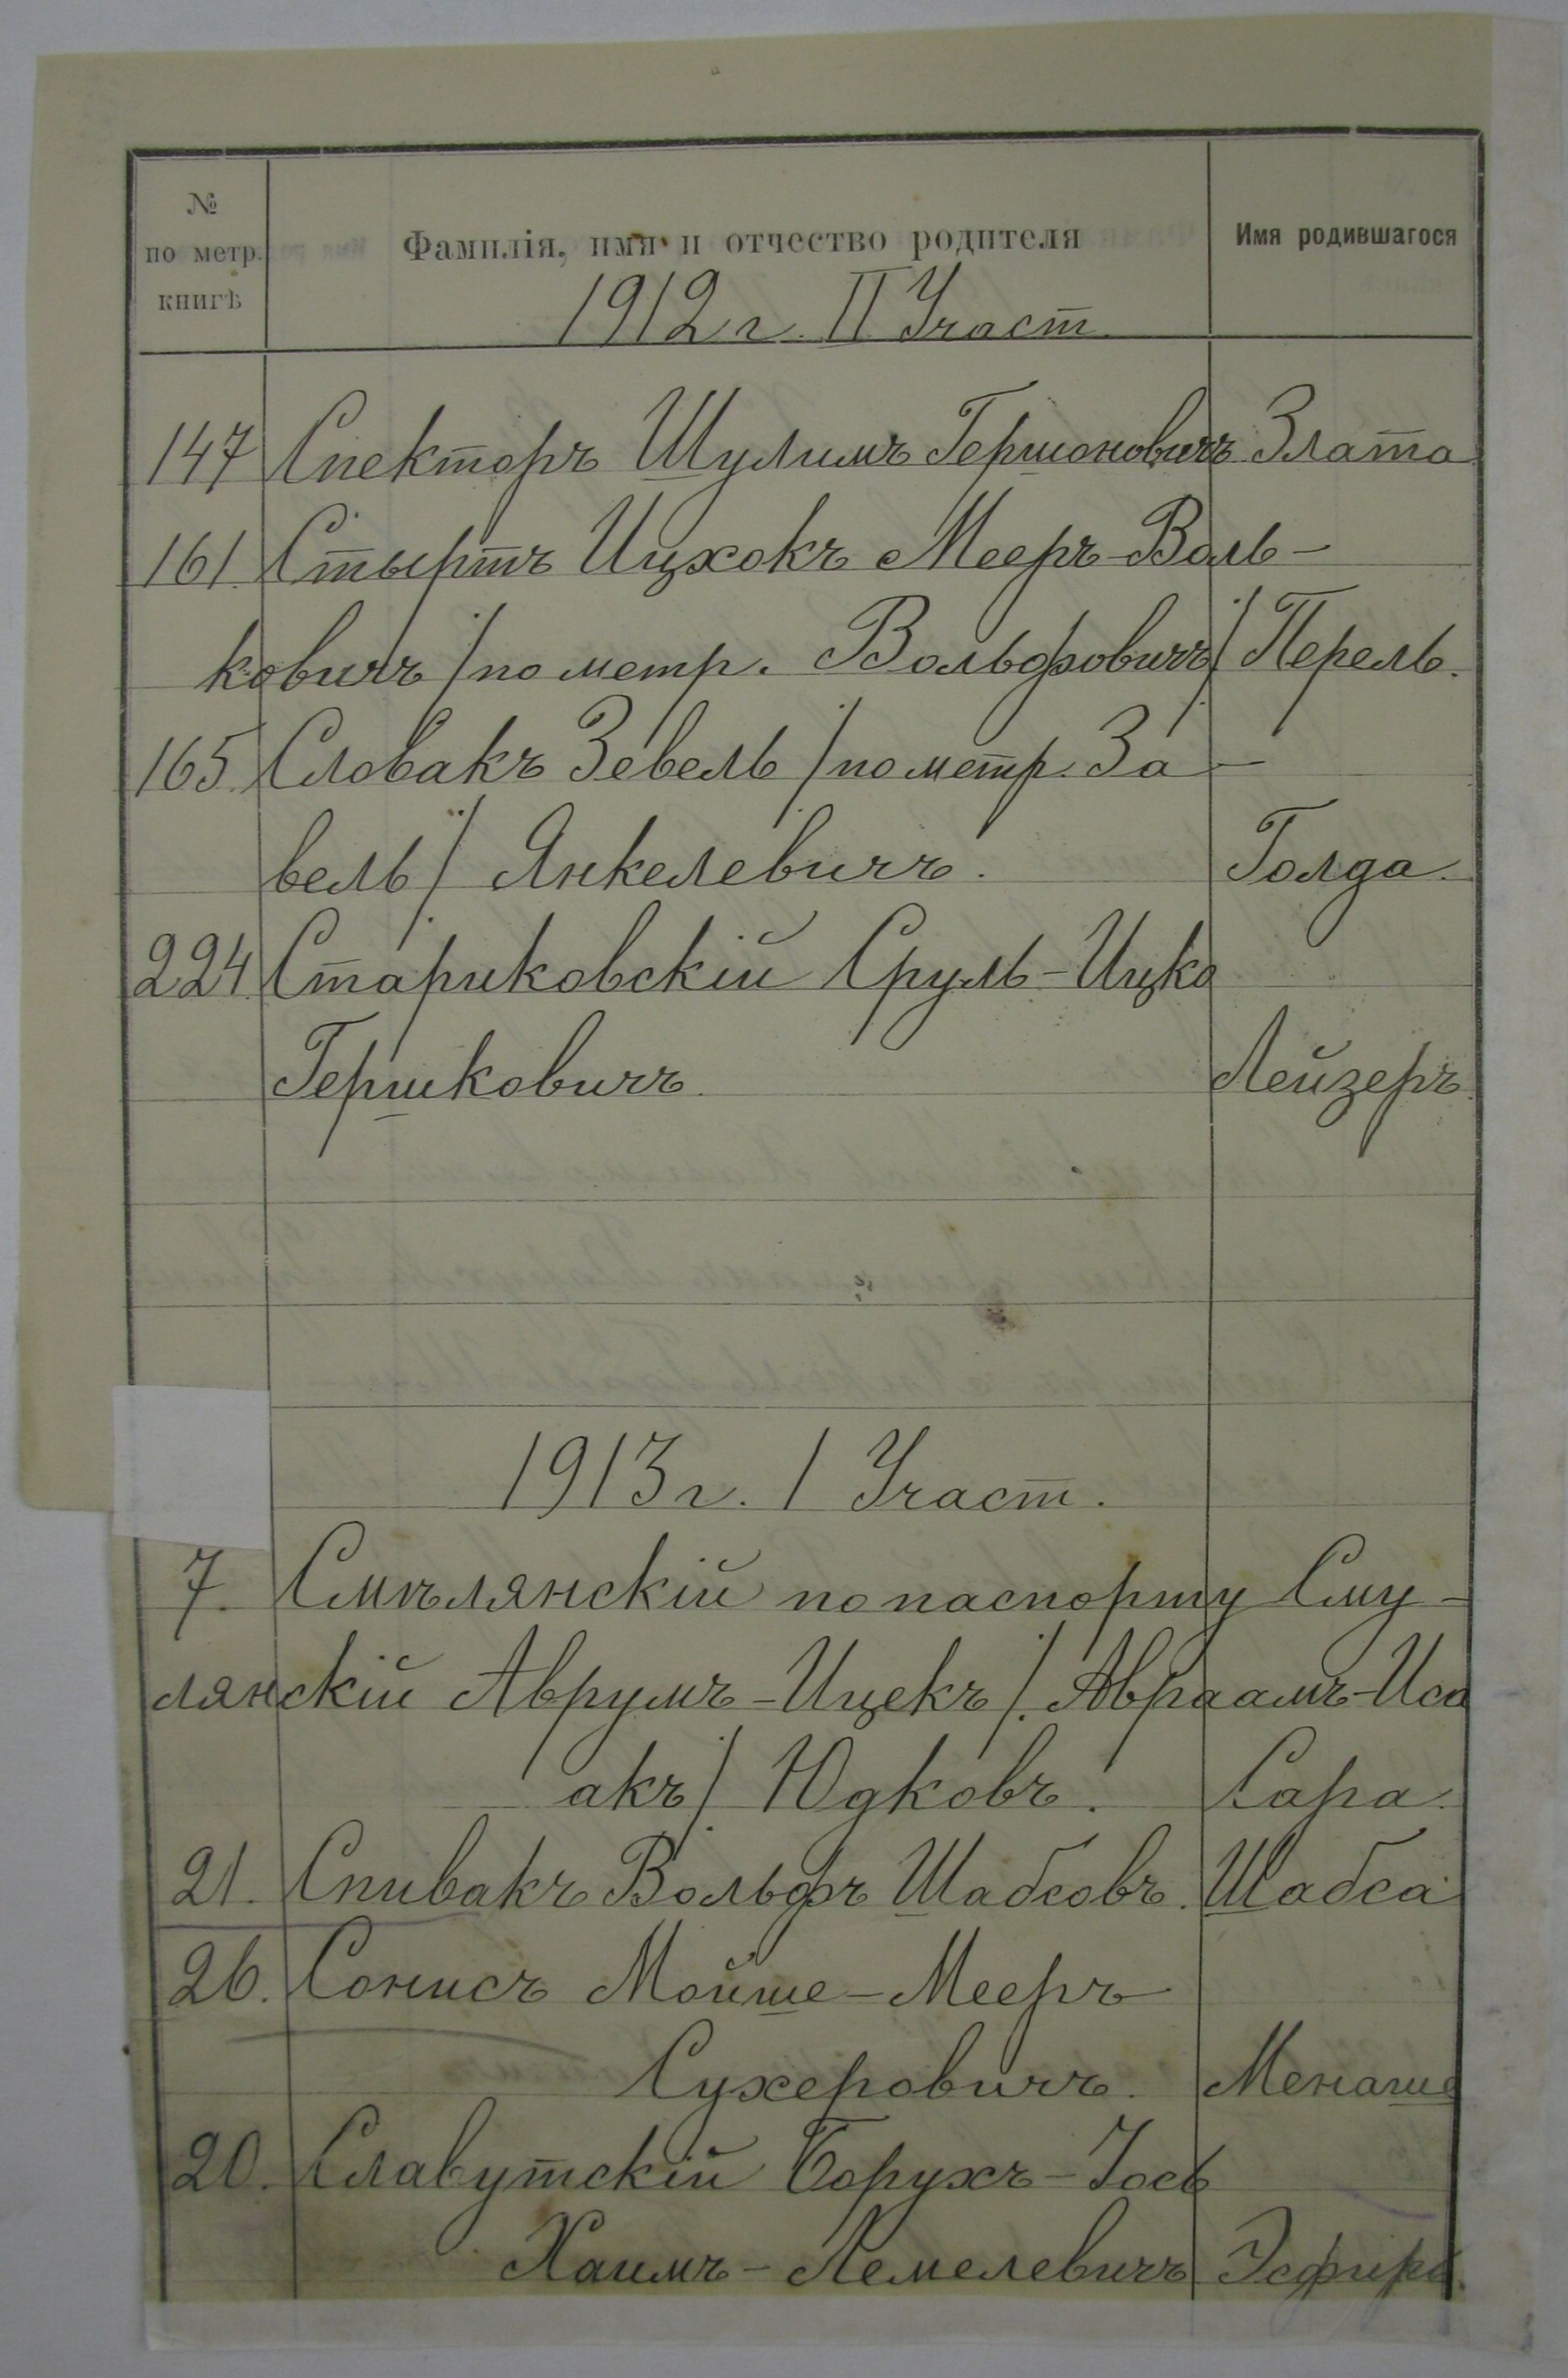 №
по метр.
книгѣ
Фамилія, имя и отчество родителя
Имя родившагося
1912 г. II Участ.
147 Спекторъ Шулимъ Гершоновичъ Злата
161. Стыртъ Ицхокъ Мееръ-Воль-
ковичъ /по метр. Вольфовичъ/ Перель.
165. Словакъ Зевель /по метр. За-
вель/ Янкелевичъ. Голда.
224. Стариковскій Сруль-Ицко
Гершковичъ. Лейзеръ.
1913 г. I Участ.
7. Смѣлянскій по паспорту Сму-
лянскій Аврумъ-Ицекъ /Авраамъ-Иса
акъ/ Юдковъ. Сара.
21. Спивакъ Вольфъ Шабсовъ. Шабса
26. Сонисъ Мойше-Мееръ
Сухеровичъ. Менаше
20. Славутскій Борухъ-Іось
Хаимъ-Лемелевичъ Эсфирь.